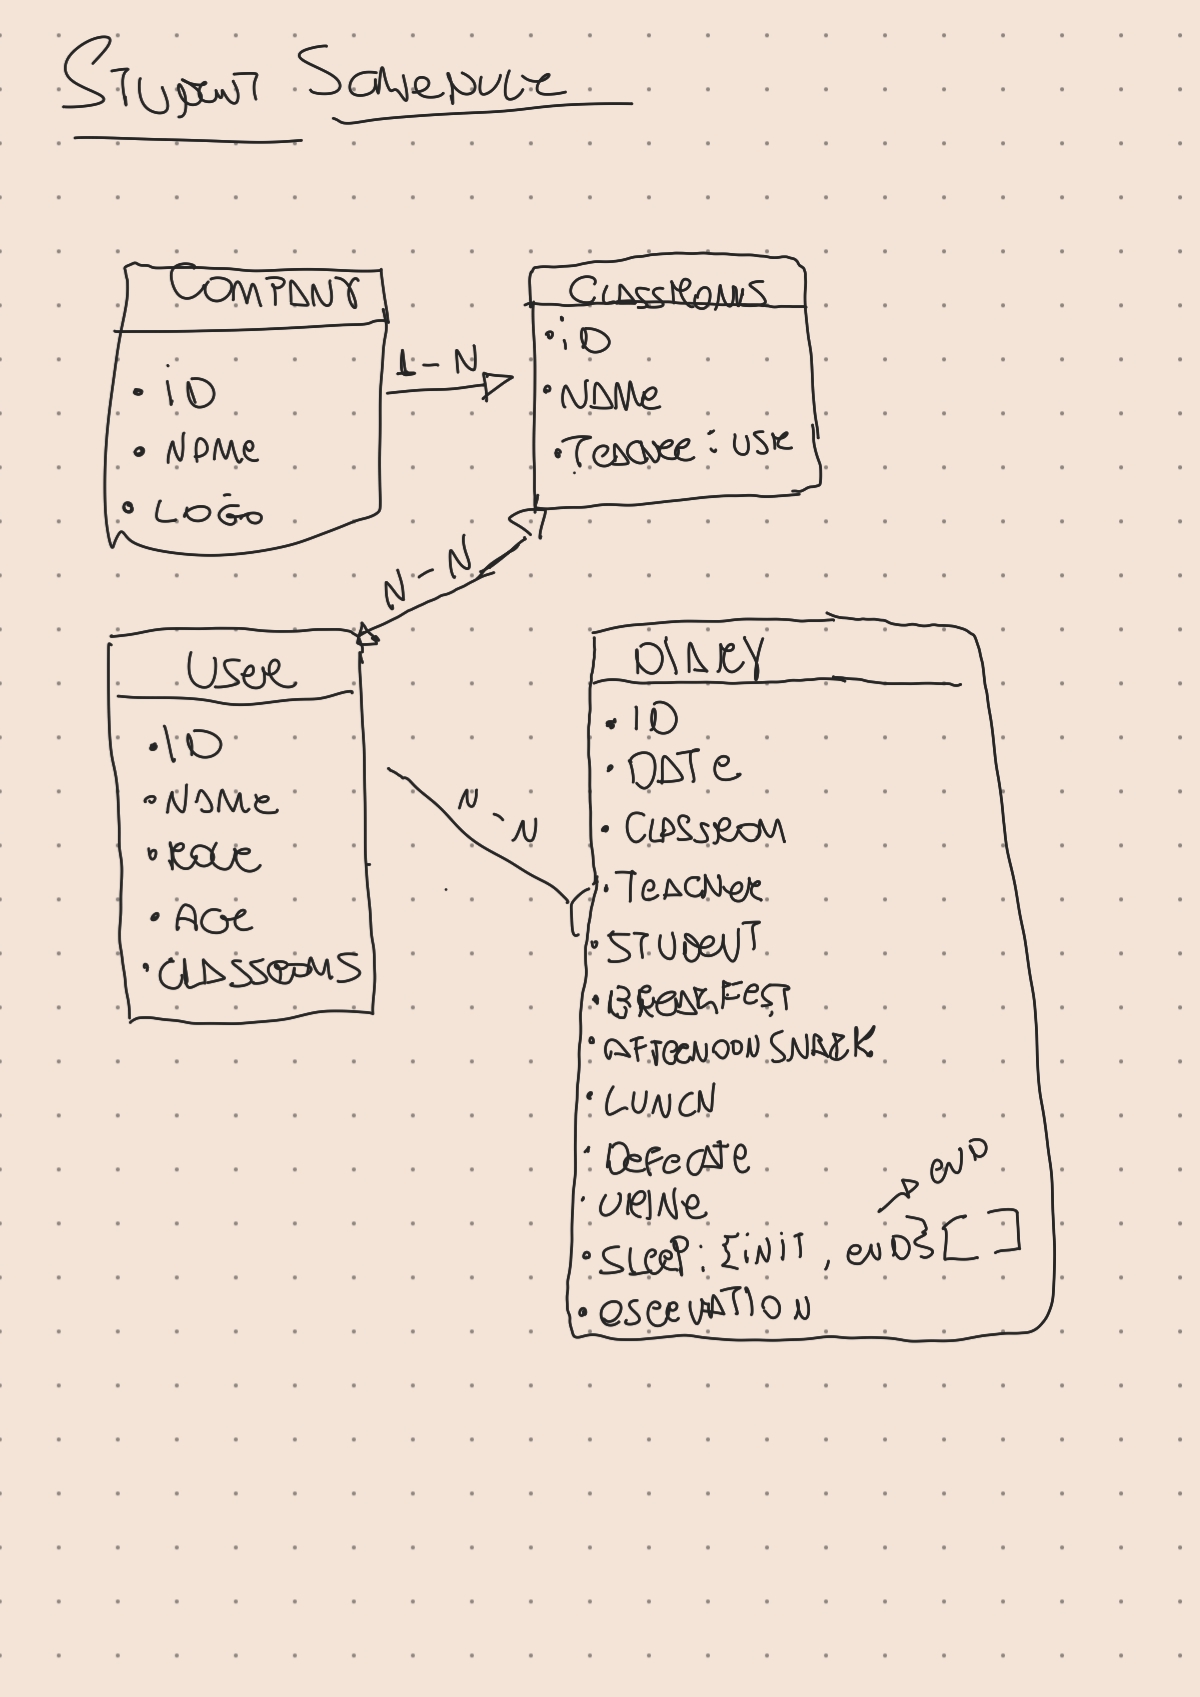 STUDENT SCHEDULE
COMPANY
• ID
• NAME
• LOGO
1-N
CLASSROOMS
• ID
• NAME
• TEACHER : USER
N-N
USER
• ID
• NAME
• ROLE
• AGE
• CLASSROOMS
N-N
DIARY
• ID
• DATE
• CLASSROOM
• TEACHER
• STUDENT
• BREAKFEST
• AFTERNOON SNACK
• LUNCH
• DEFECATE
• URINE
• SLEEP : {INIT , END}[ ]
→ END
• OSERVATION